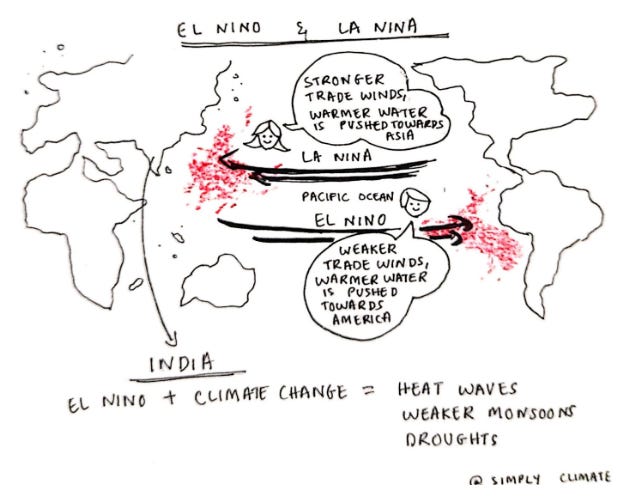 EL NINO & LA NINA
STRONGER
TRADE WINDS,
WARMER WATER
IS PUSHED TOWARDS
ASIA
LA NINA
PACIFIC OCEAN
EL NINO
WEAKER
TRADE WINDS,
WARMER WATER
IS PUSHED
TOWARDS
AMERICA
INDIA
EL NINO + CLIMATE CHANGE = HEAT WAVES
WEAKER MONSOONS
DROUGHTS
@ SIMPLY CLIMATE